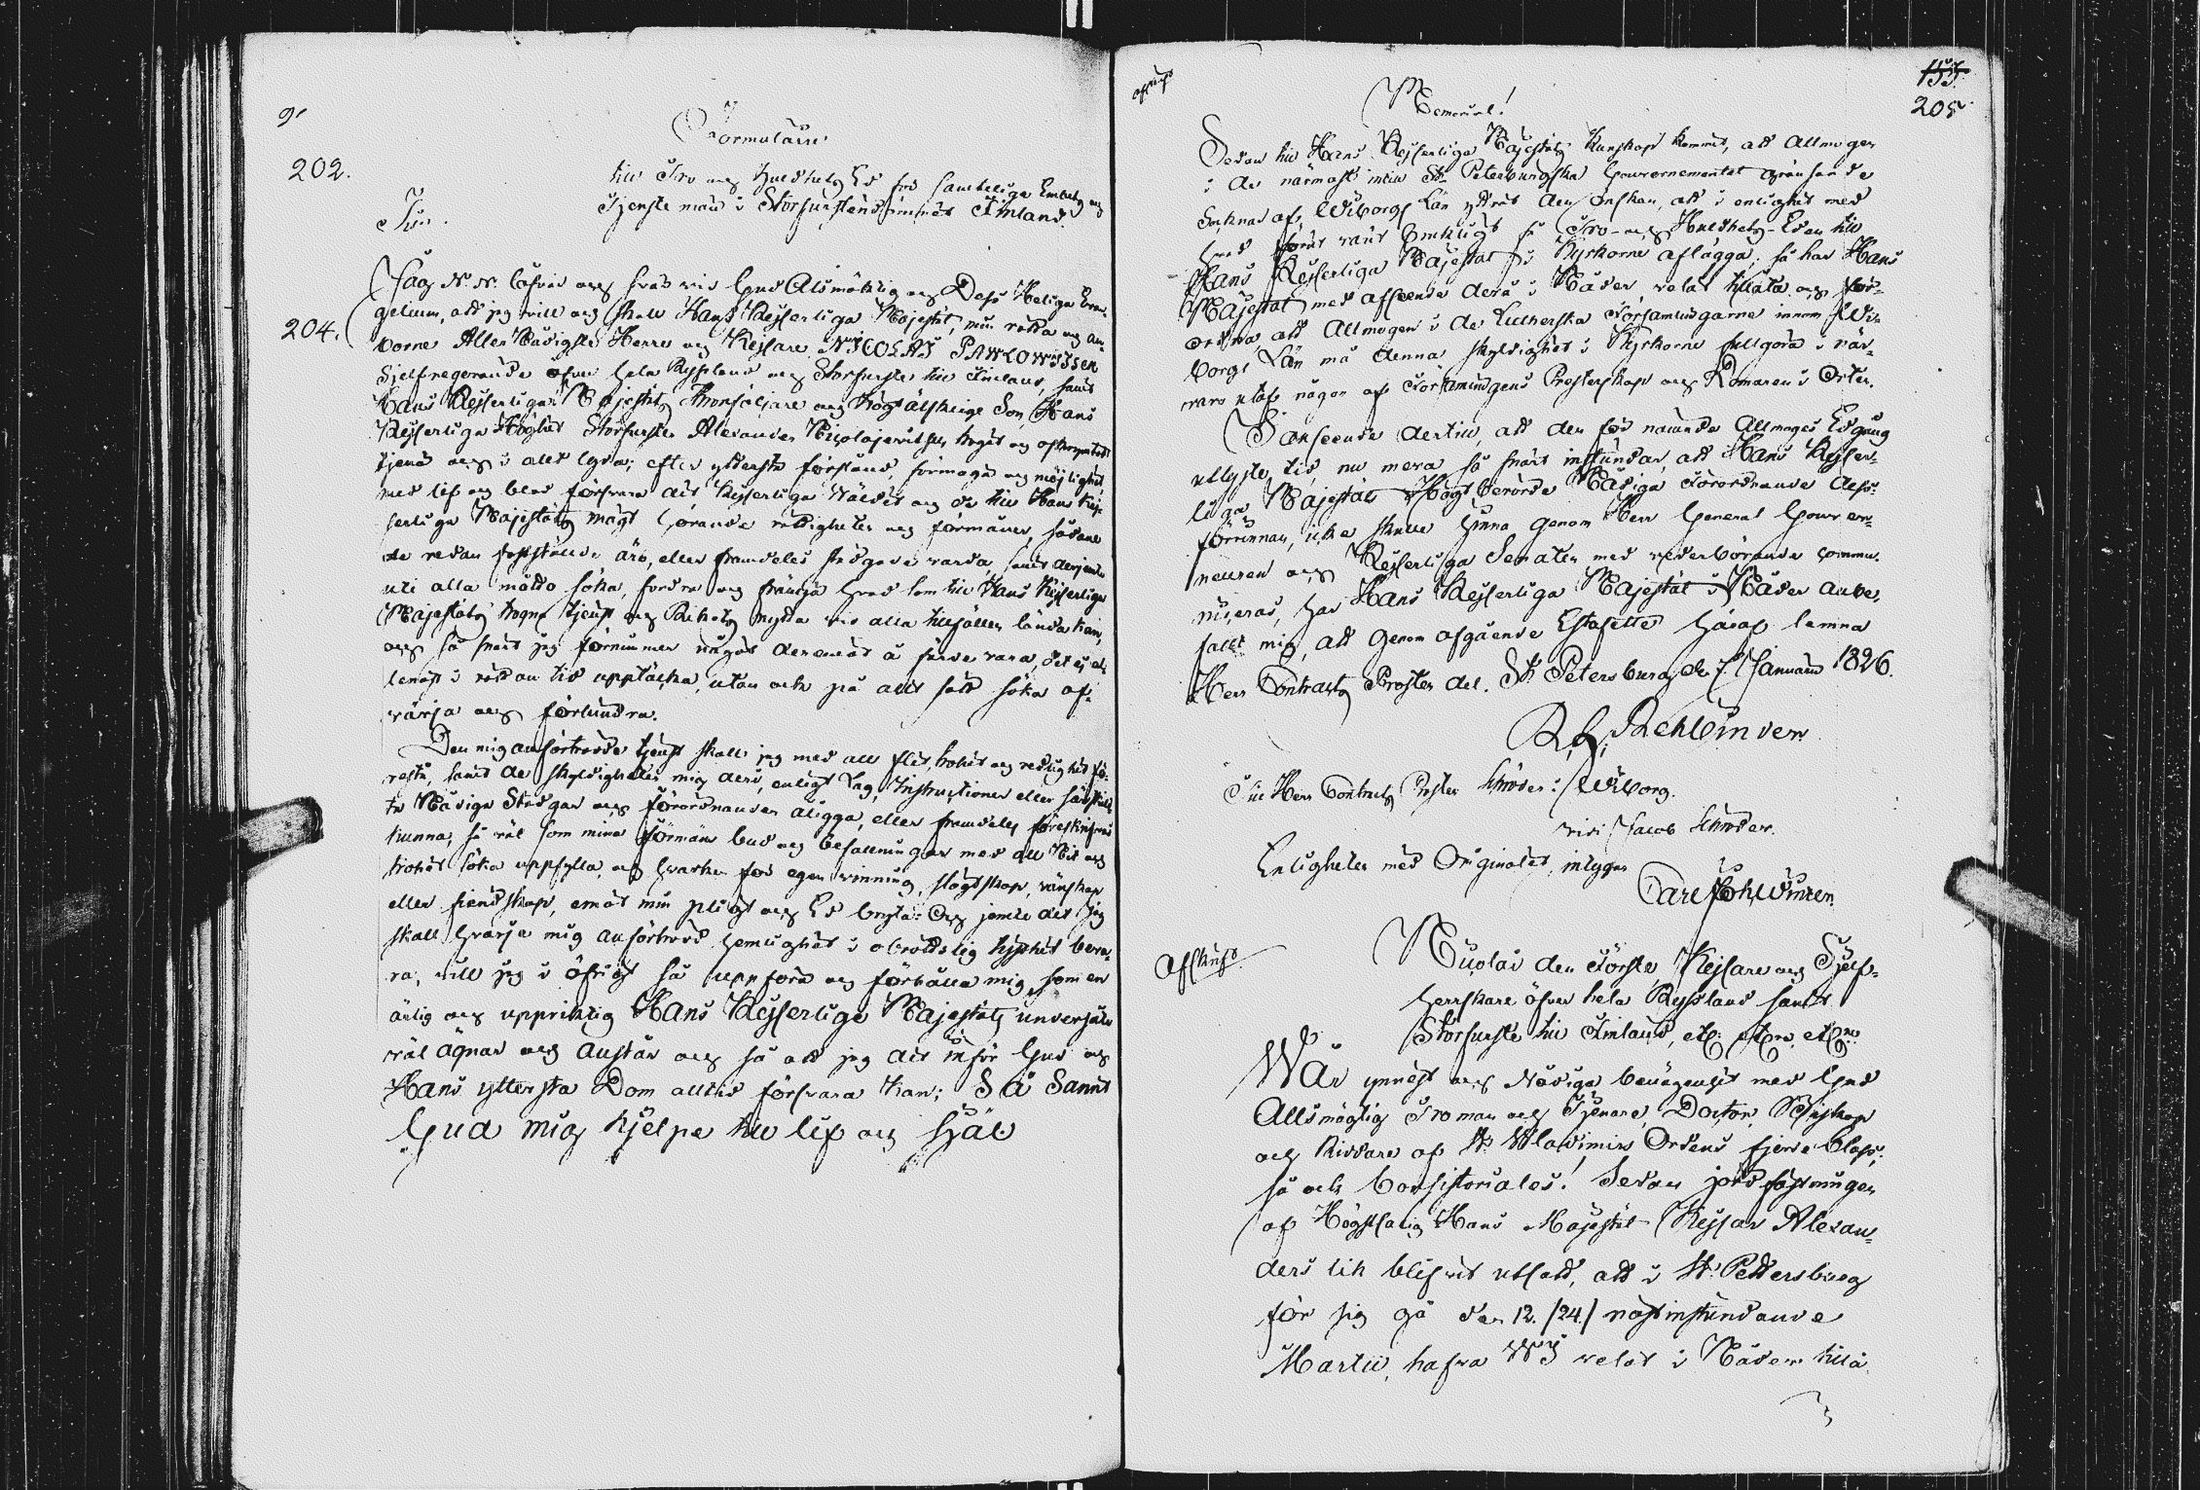 202.
204.
Formulaire
till Tro och Huldhets Ed för samtelige Embets och
Tjenstemän i Storfurstendömmet Finland.
Jag N. N. låfvar och svär vid Gud Alsmäktig och Dess Heliga Evan-
gelium, att jag vill och skall Hans Kejserliga Majestät, min rätta och an-
borne Aller Nådigste Herre och Kejsare NICOLAI PAWLOWITSCH
Sjelfregerande öfver hela Ryssland och Storfurste till Finland, samt
Hans Kejserliga Majestäts Thronföljare och högt älskelige Son, Hans
Kejserliga Höghet Storfursten Alexander Nicolajevitsch troget och oskrymtadt
tjena och i allt lyda; efter yttersta förstånd, förmåga och möjlighet
med lif och blod försvara det Kejserliga Wäldet och de till Hans Kej-
serliga Majestäts magt hörande rättigheter och förmåner, sådane
de redan fastställde äro, eller framdeles stadgade varda, samt derjemte
uti alla måtto söka, fordra och främja hvad som till Hans Kejserliga
Majestäts trogna tjenst och Rikets nytta vid alla tillfällen lända kan,
och så snart jag förnimmer något deremot å färde vara, det ej al-
lenast i rättan tid upptäcka, utan ock på allt sätt söka af-
värja och förhindra.
Den mig anförtrodde tjenst skall jag med all flit, trohet och redlighet fö-
restå, samt de skyldigheter mig dervid, enligt Lag, Instructioner eller särskil-
te Nådiga Stadgar och Förordnanden åligga, eller framdeles föreskrifvas
kunna, så väl som mina Förmäns bud och befallningar med all flit och
trohet söka uppfylla, och hvarken för egen vinning, slägtskap, vänskap
eller fiendskap, emot min pligt och Ed bryta: Och jemte det jag
skall hvarje mig anförtrodd hemlighet i obrottslig tysthet beva-
ra, vill jag i öfrigt så uppföra och förhålla mig, som en
ärlig och uppriktig Hans Kejserliga Majestäts undersåte
väl ägnar och anstår och så att jag det inför Gud och
Hans yttersta Dom alltid försvara kan; Så Sannt
Gud mig hjelpe till lif och Själ
155.
205
Memorial!
Sedan till Hans Kejserliga Majestäts kunskap kommit, att Allmogen
i de närmast intill St. Petersburgska Gouvernementet gränsande
Soknar af Wiborgs Län yttrat den önskan, att i enlighet med
hvad förut varit brukligt få Tro- och Huldhets-Eden till
Hans Kejserliga Majestät i Kyrkorne aflägga, så har Hans
Majestät med afseende derå i Nåder velat tillåta och för-
ordna att Allmogen i de Lutherska Församlingarne innom Wi-
borgs Län må denna skyldighet i Kyrkorne fullgöra i när-
varo utaf någon af Församlingens Presterskap och Domaren i Orten.
I anseende dertill, att den för nämnde Allmoges Edgång
utlyste tid nu mera så snart instundar, att Hans Kejser-
liga Majestäts Högstberörde Nådiga Förordnande dess-
förinnan, icke skulle hinna genom Herr General Gouver-
neuren och Kejserliga Senaten med vederbörande commu-
niceras, har Hans Kejserliga Majestät i Nåder anbe-
fallt mig, att genom afgående Estafette häraf lemna
Herr Contracts Prosten del. St. Petersburg, den 7. Januarii 1826.
R. H. Rehbinder
Till Herr Contracts Prosten Schröder i Wiborg.
vidi Jacob Schröder.
Enligheten med Originalet, intygar
Carl Joh. Winter.
Afskrift.
Nicolai den Förste, Kejsare och Sjelf-
herrskare öfver hela Ryssland samt
Storfurste till Finland, etc. etc. etc.
Wår ynnest och Nådiga benägenhet med Gud
Allsmägtig Tro man och Tjenare, Doctor, Biskop
och Riddare af St. Wladimirs Ordens fjerde Class,
så ock Consistoriales! Sedan jordfästningen
af Högstsalig Hans Majestät Kejsar Alexan-
ders lik blifvit utsatt, att i St. Pettersburg
för sig gå den 12./24./ nästinstundande
Martii, hafva WI velat i Nåder tillå